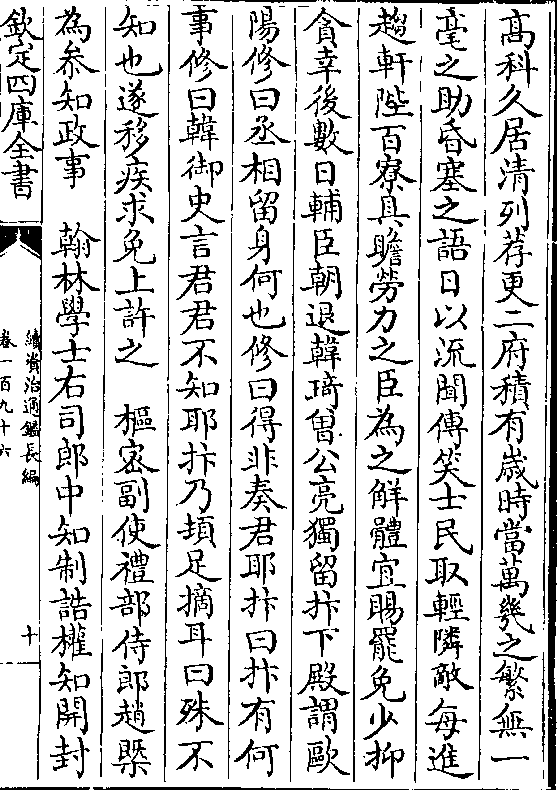 髙科久居清列荐更二府積有歳時當萬幾之繁無一
毫之助昏塞之語日以流聞傳笑士民取輕隣敵每進
趨軒陛百寮具瞻勞力之臣為之解體宜賜罷免少抑
貪幸後數日輔臣朝退韓琦曾公亮獨留抃下殿謂歐
陽修曰丞相留身何也修曰得非奏君耶抃曰抃有何
事修曰韓御史言君君不知耶抃乃頓足摘耳曰殊不
知也遂移疾求免上許之　樞宻副使禮部侍郎趙槩
為参知政事　翰林學士右司郎中知制誥權知開封
欽定四庫全書
續資治通鑑長編
卷一百九十六
十